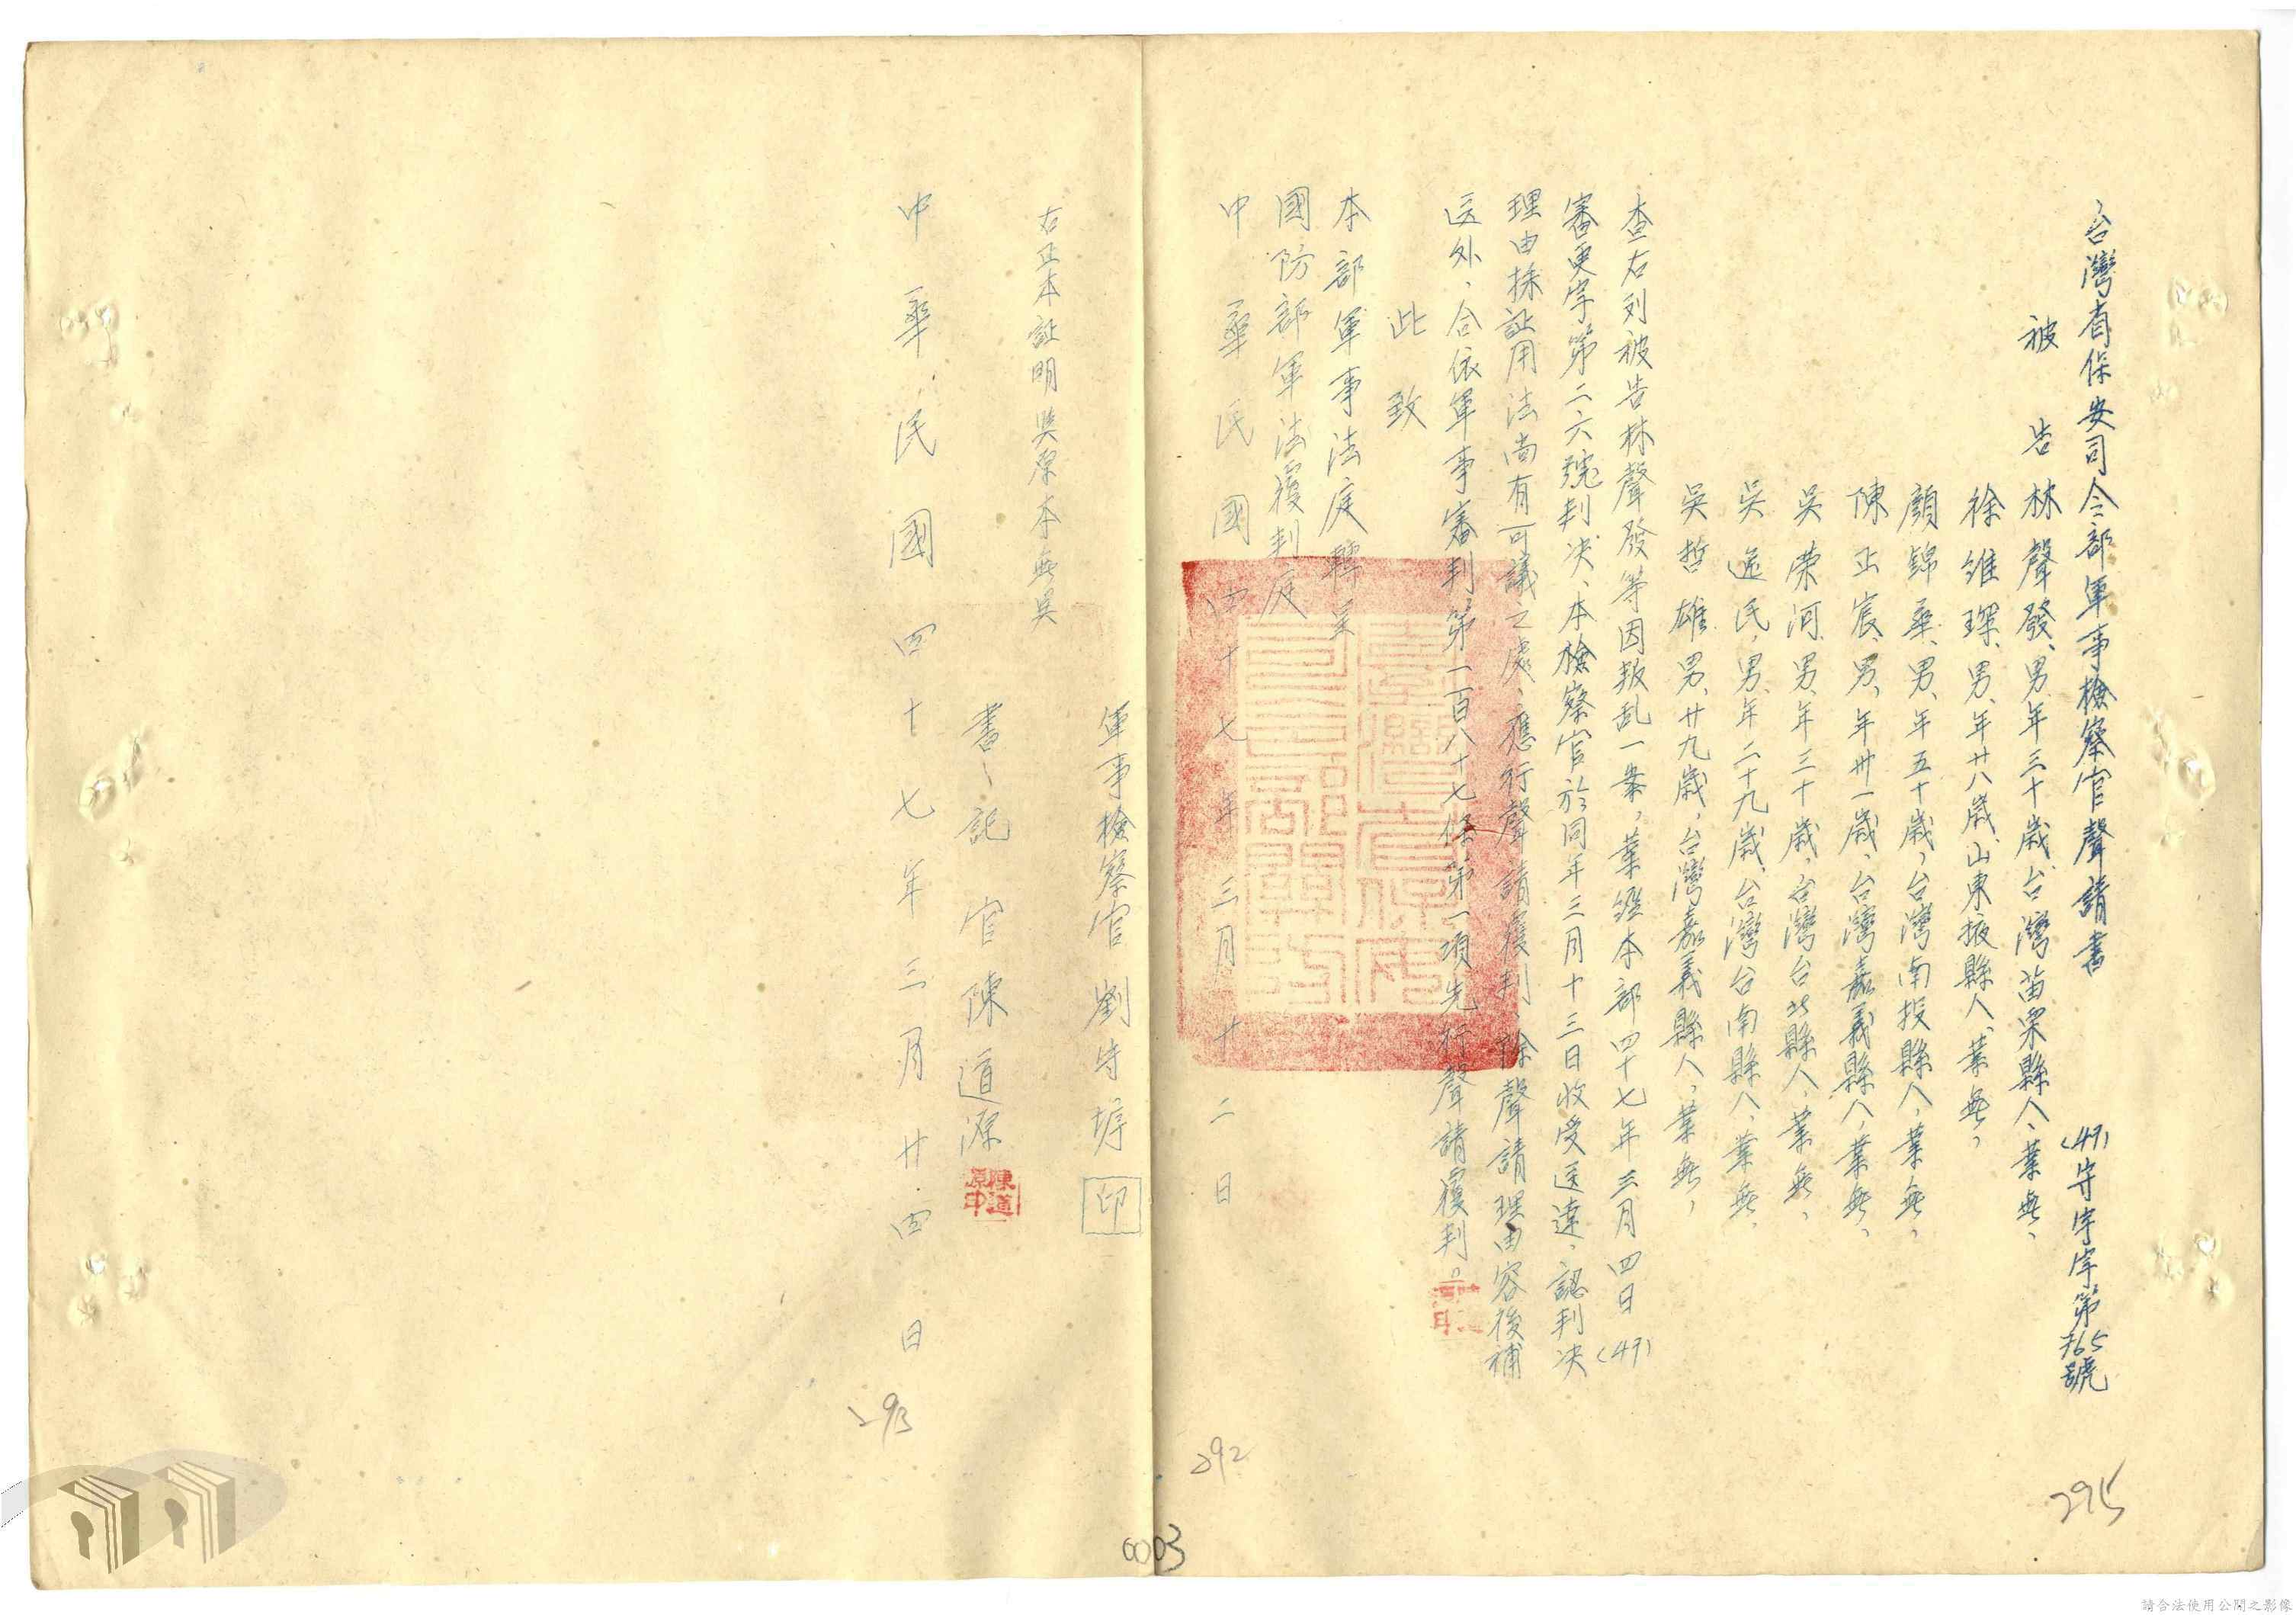 台灣省保安司令部軍事檢察官聲請書 (47)守宇字第765號
被告 林聲發、男、年三十歲、台灣苗栗縣人、業無、
徐維琛、男、年廿八歲、山東掖縣人、業無、
顏錦華、男、年五十歲、台灣南投縣人、業無、
陳正宸、男、年卅一歲、台灣嘉義縣人、業無、
吳荣河、男、年三十歲、台灣台北縣人、業無、
吳逸民、男、年二十九歲、台灣台南縣人、業無、
吳哲雄、男、廿九歲、台灣嘉義縣人、業無、
查右列被告林聲發等因叛乱一案，業經本部四十七年三月四日(47)
審更字第二六號判决、本檢察官於同年三月十三日收受送達，認判决
理由採証用法尚有可議之處、應行聲請覆判、除聲請理由容後補
送外，合依軍事審判第一百八十七條第一項先行聲請覆判。
此致
本部軍事法庭轉呈
國防部軍法覆判庭
中華民國四十七年三月廿二日
軍事檢察官 劉守 印
右正本証明與原本無異
書記官陳道源
陳道源印
中華民國四十七年三月廿四日
293
292
295
0003
請合法使用公開之影像